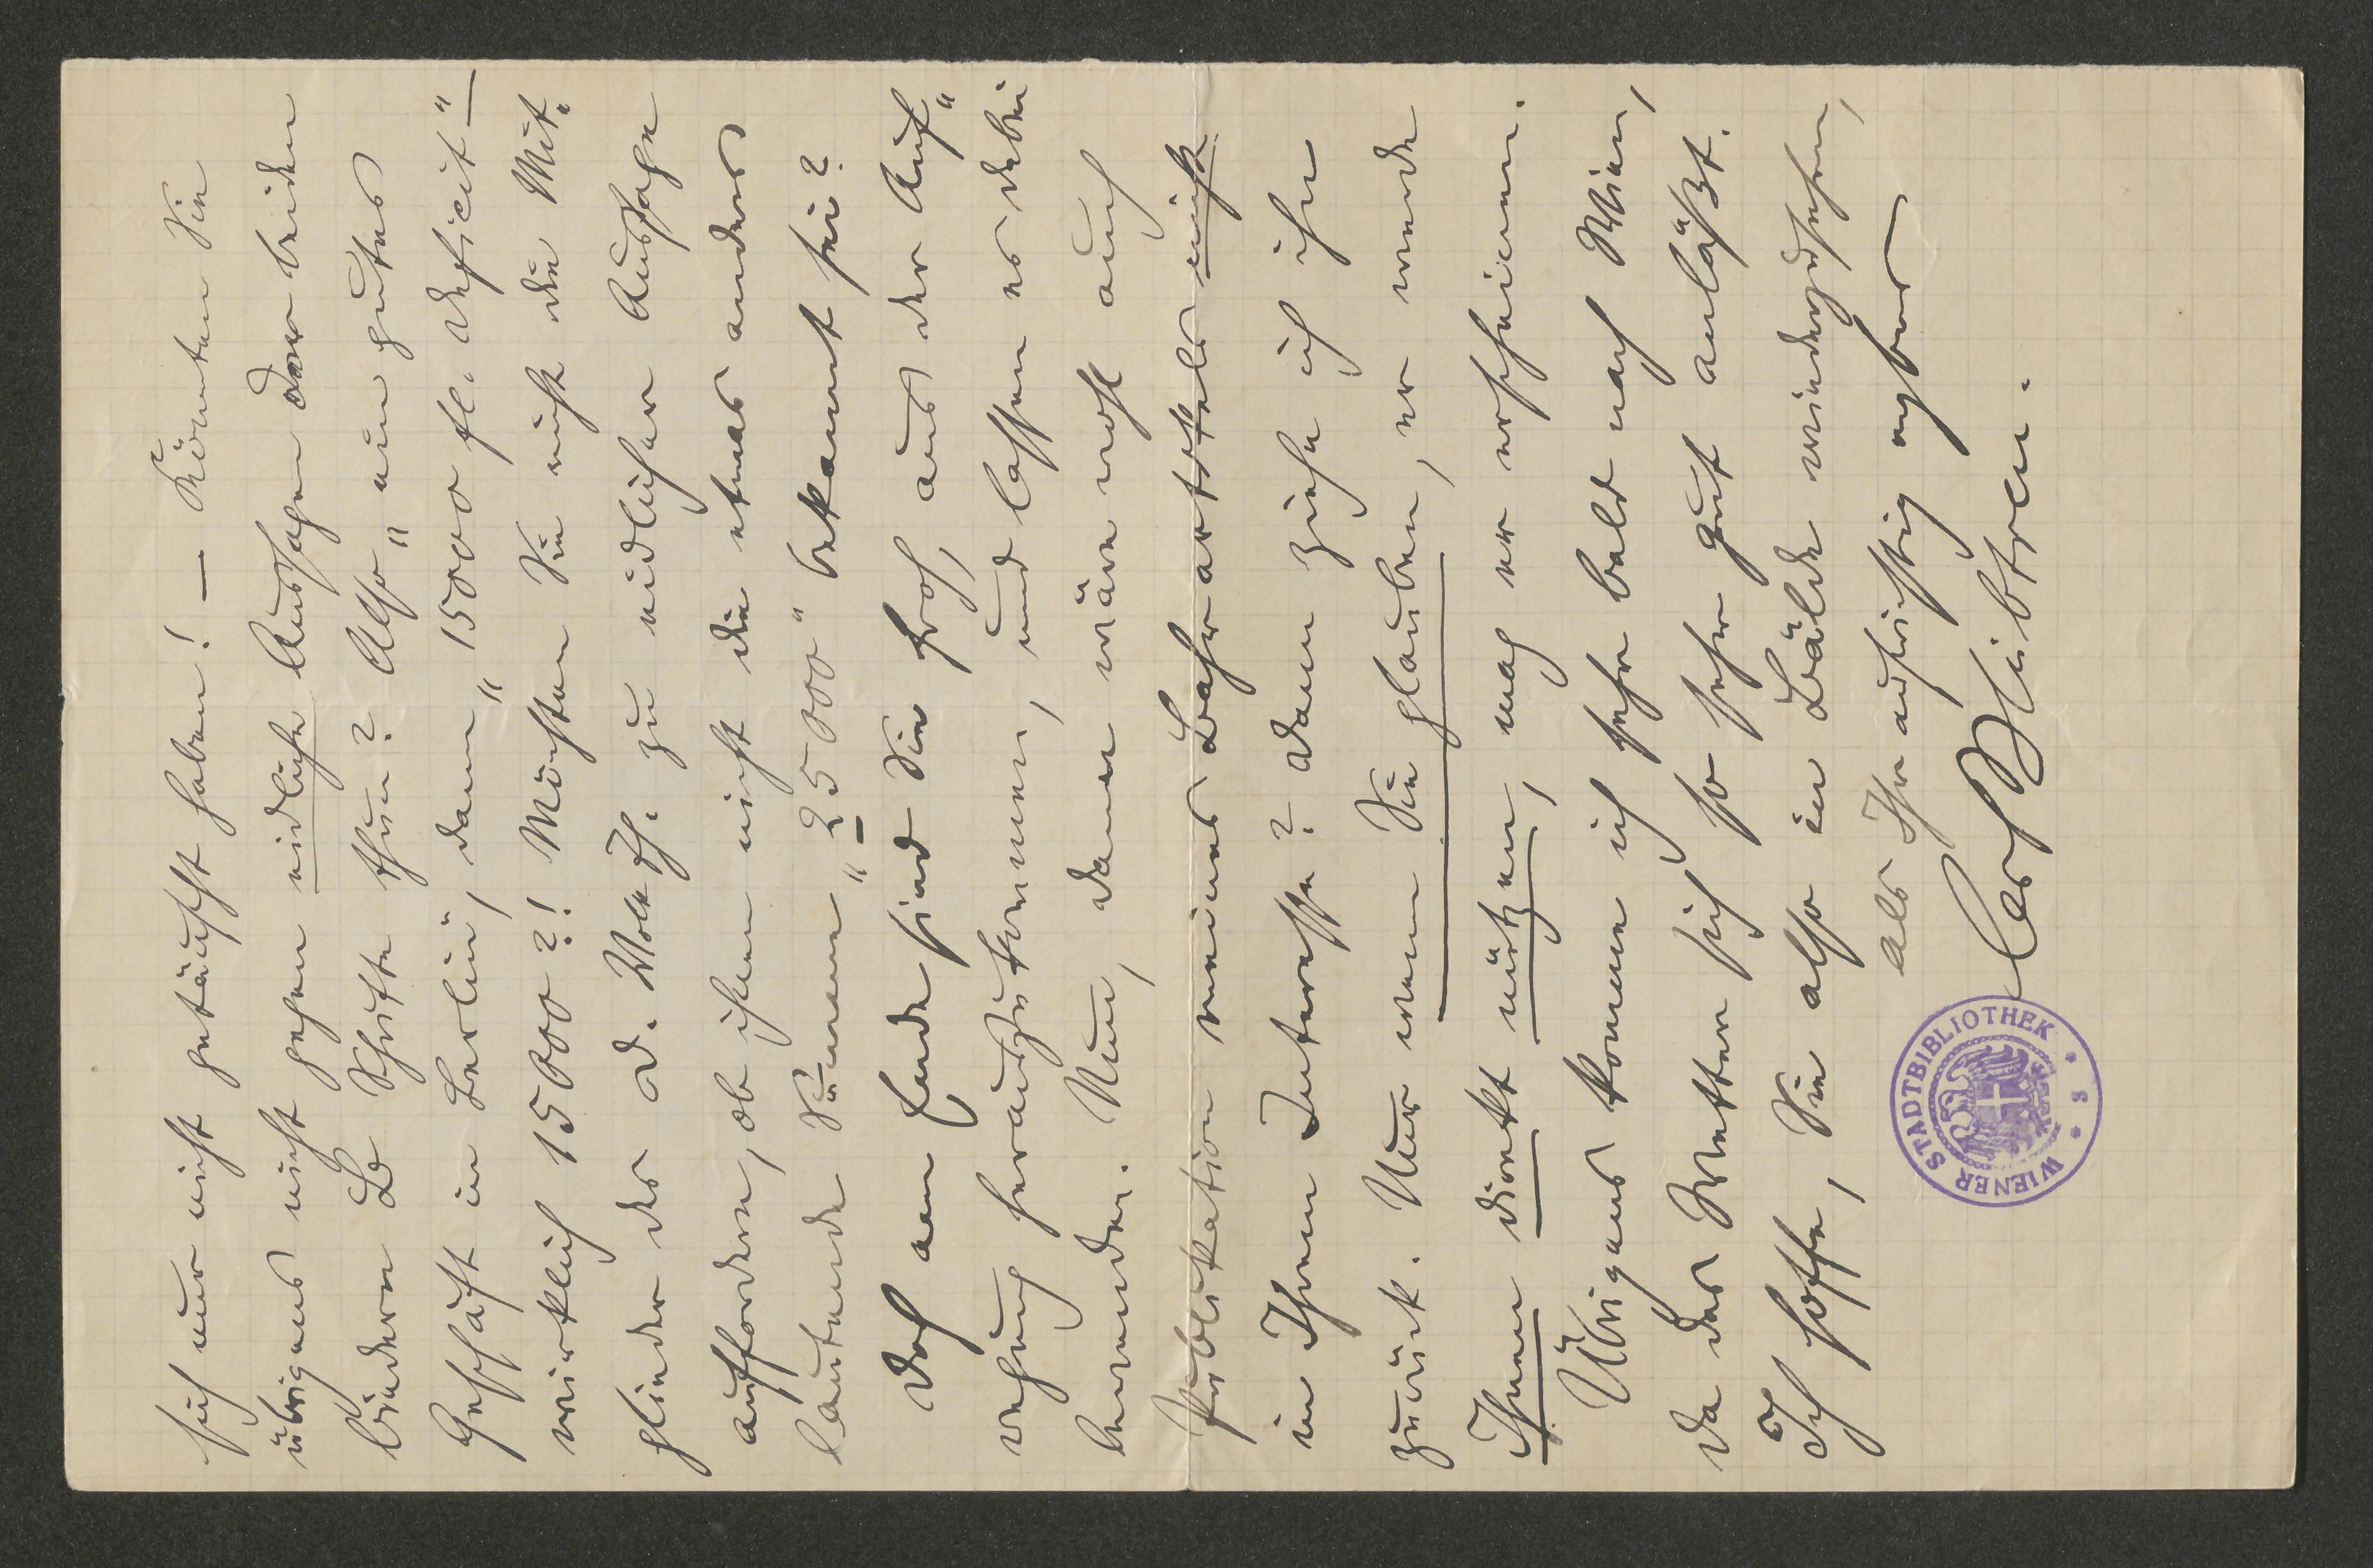 sich nur nicht getäuscht haben! — Könnten Sie
übrigens nicht gegen eidliche Aussagen der beiden
Brüdern B Schritte thun? Also „ein gutes
Geschäft in Berlin, dann „15000 fl. deficit“ —
wirklich 15000?! Möchten Sie nicht die Mit-
glieder des d. Volksth. zu eidlicher Aussage
auffordern, ob ihnen nicht die etwas anders
lautende Summe „25000“ bekannt sei?
Doch am Ende sind Sie froh, aus der Auf-
regung herauszukommen, und lassen es dabei
bewenden. Nun, dann wäre wohl auch
Publikation meines Bahrartikels nicht
in Ihrem Interesse? Dann ziehe ich ihn
zurück. Nur wenn Sie glauben, er werde
Ihnen direkt nützen, mag er erscheinen.
Übrigens komme ich sehr bald nach Wien,
da das Wetter sich so sehr gut anläßt.
Ich hoffe, Sie also in Bälde wiederzusehen,
als Ihr aufrichtig ergebener
Carl Bleibtreu.
WIENER STADTBIBLIOTHEK * 3 *